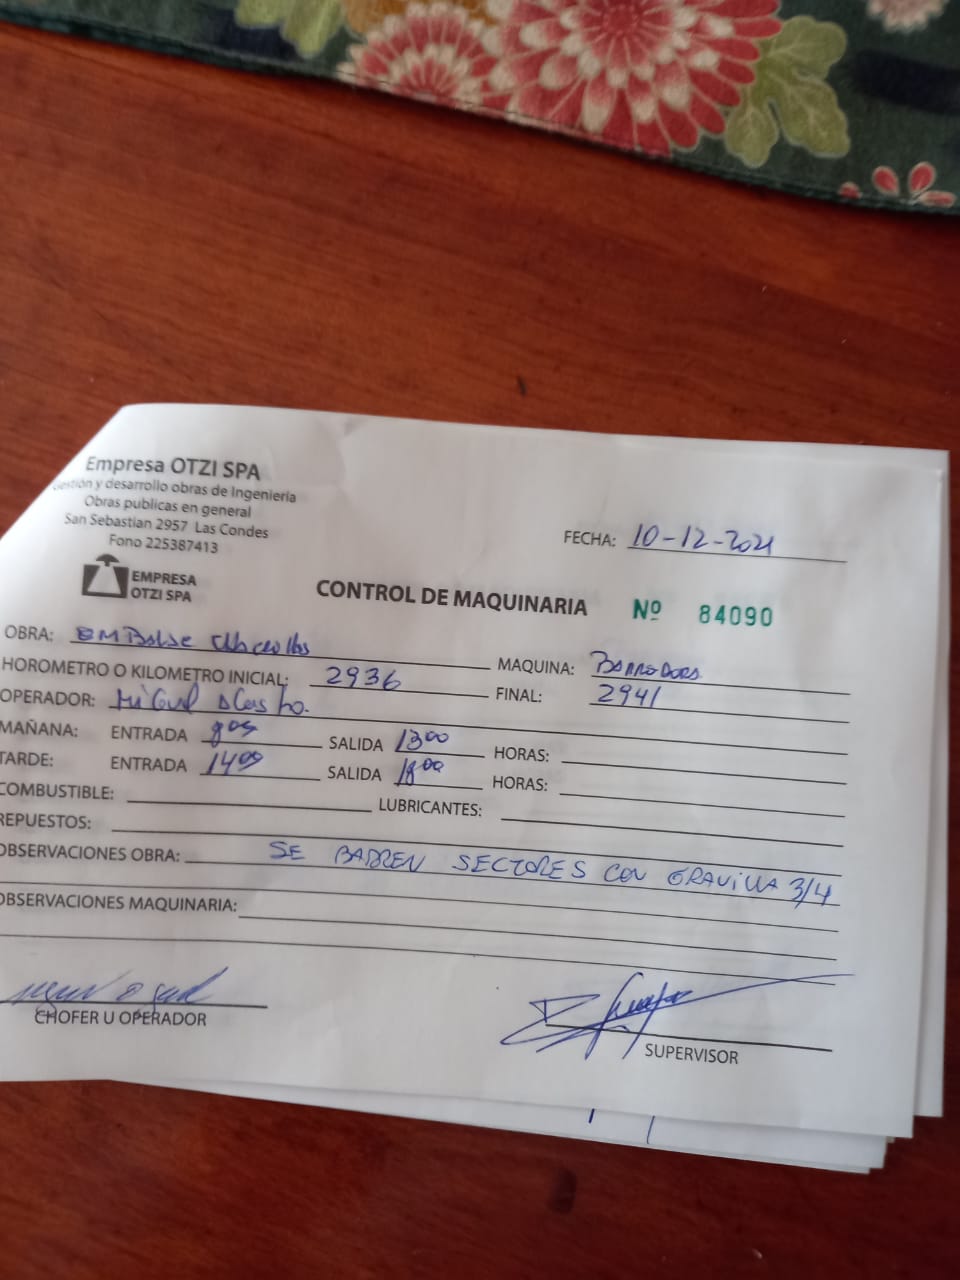 Empresa OTZI SPA
Gestión y desarrollo obras de Ingeniería
Obras publicas en general
San Sebastian 2957 Las Condes
Fono 225387413
EMPRESA
OTZI SPA
FECHA: 10-12-2021
CONTROL DE MAQUINARIA Nº 84090
OBRA: EMBalse MAQUINA: BARREDORA
HOROMETRO O KILOMETRO INICIAL: 2936 FINAL: 2941
OPERADOR: MiGuel
MAÑANA: ENTRADA 800 SALIDA 1300 HORAS:
TARDE: ENTRADA 1400 SALIDA 1800 HORAS:
COMBUSTIBLE: LUBRICANTES:
REPUESTOS:
OBSERVACIONES OBRA: SE BARREN SECTORES CON GRAVILLA 3/4
OBSERVACIONES MAQUINARIA:
CHOFER U OPERADOR
SUPERVISOR